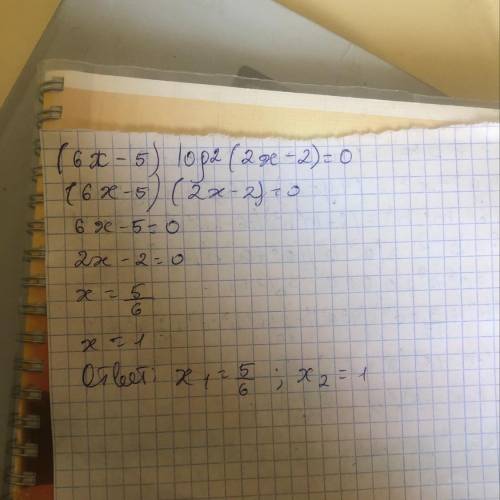 (6x-5) log2(2x-2)=0
(6x-5)(2x-2)=0
6x-5=0
2x-2=0
x=5/6
x=1
Ответ: x₁=5/6; x₂=1